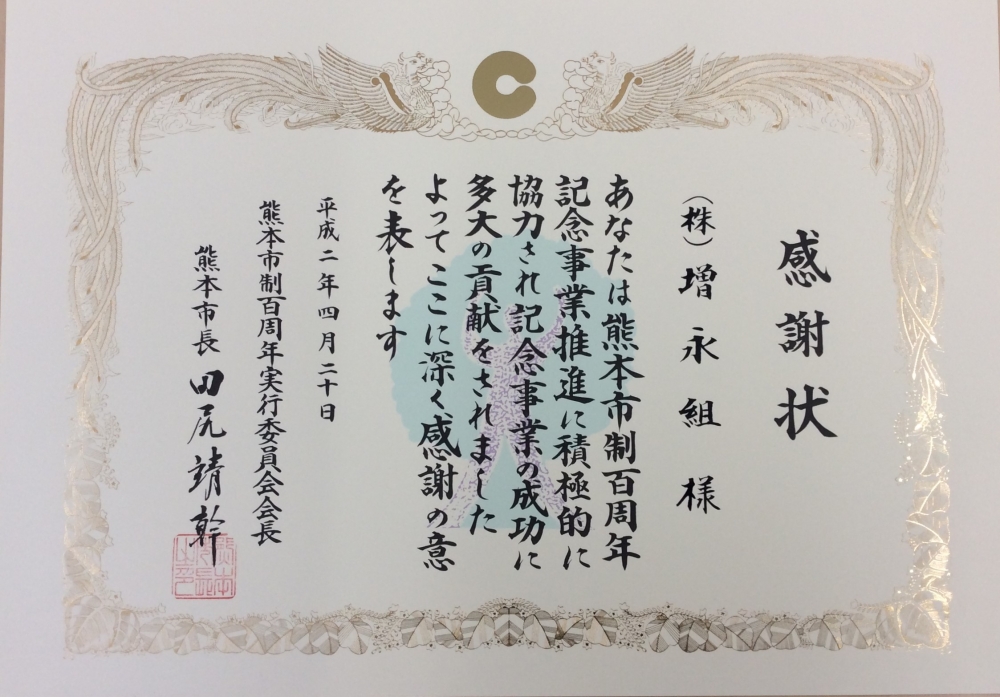 感謝状
(株)増永組様
あなたは熊本市制百周年
記念事業推進に積極的に
協力され記念事業の成功に
多大の貢献をされました
よってここに深く感謝の意
を表します
平成二年四月二十日
熊本市制百周年実行委員会会長
熊本市長 田尻靖幹